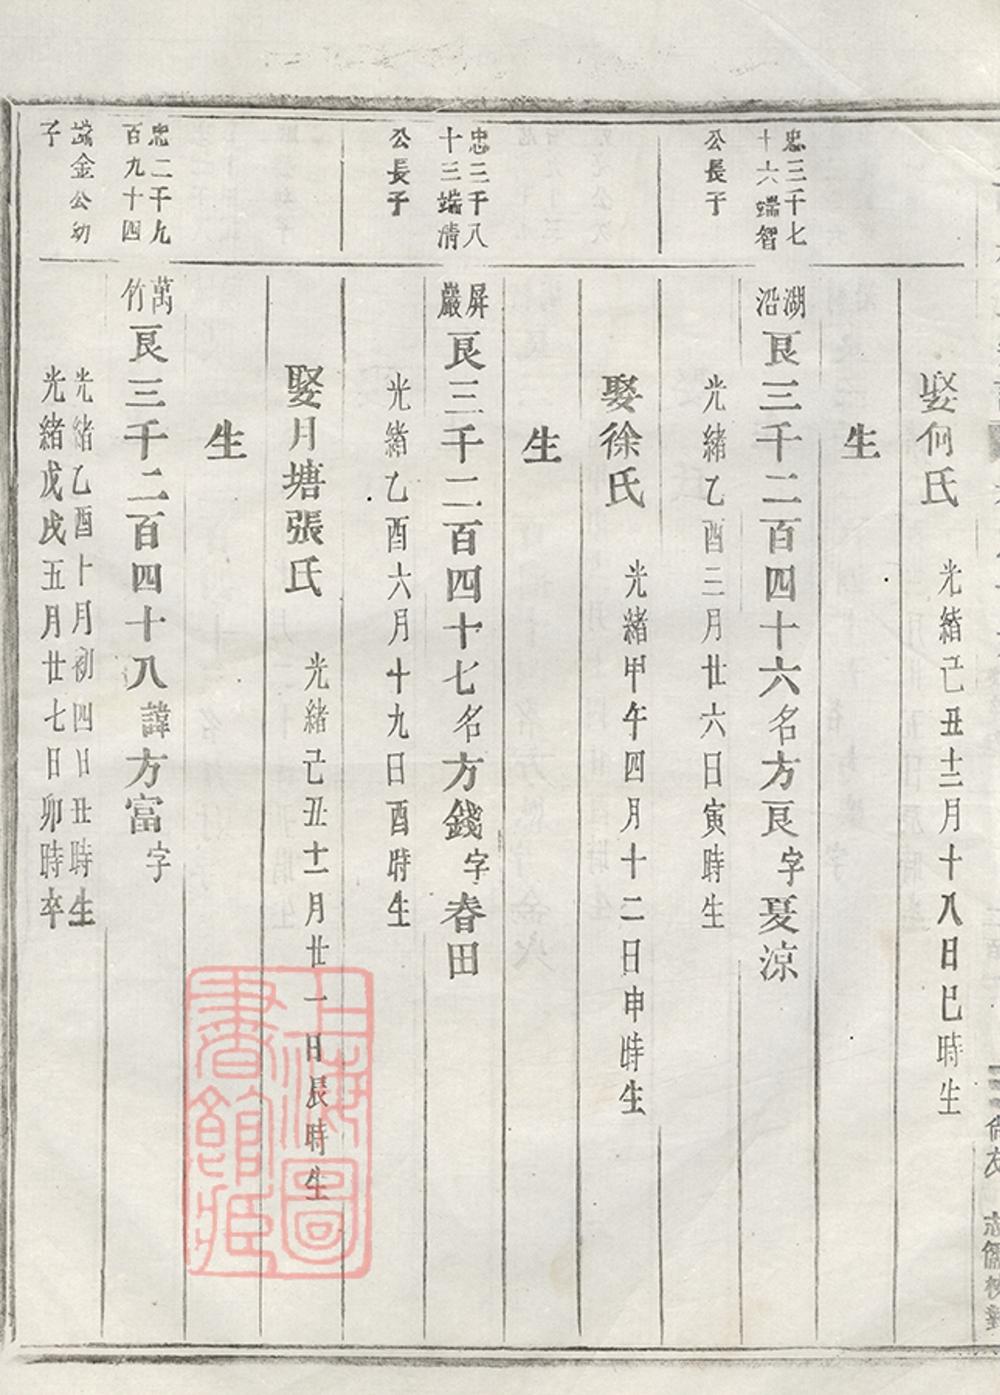 娶何氏
光緒己丑十二月十八日巳時生
生
忠二千七
十六端智
公長子
湖
沿
良三千二百四十六名方良字夏涼
光緒乙酉三月廿六日寅時生
娶徐氏
光緒甲午四月十二日申時生
生
忠二千八
十三端清
公長子
屏
巖
良三千二百四十七名方錢字春田
光緒乙酉六月十九日酉時生
娶月塘張氏
光緒己丑十一月廿一日辰時生
生
忠二千九
百九十四
端金公幼
子
萬
竹
良三千二百四十八諱方富字
光緒乙酉十月初四日丑時生
光緒戊戌五月廿七日卯時卒
上海圖
書館藏